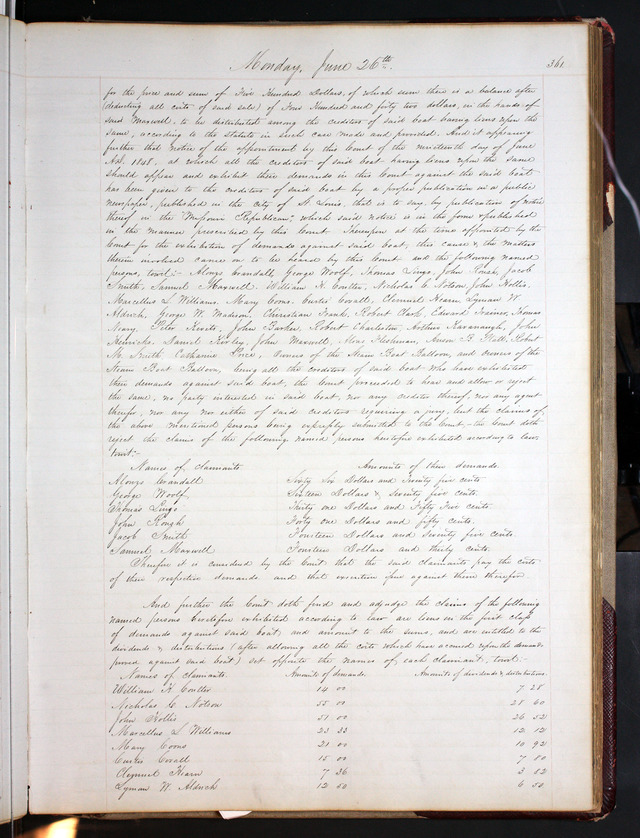 Monday, June 26th. 361
for the price and sum of Five Hundred Dollars, of which sum there is a balance after
deducting all costs of said sale) of Four Hundred and forty two dollars, in the hands of
said Maxwell, to be distributed among the creditors of said boat having liens upon the
same, according to the Statute in such case made and provided. And it appearing
further that notice of the appointment by this Court of the nineteenth day of June
A.D. 1848, at which all the creditors of said boat having liens upon the same
should appear and exhibit their demands in this Court against the said boat
has been given to the creditors of said boat by a proper publication in a public
newspaper, published in the City of St Louis, that is to say, by publication of notice
thereof in the "Missouri Republican," which said notice is in the form & published
in the manner prescribed by this Court. Thereupon at the time appointed by the
Court for the exhibition of demands against said boat, this cause & the matters
therein involved came on to be heard by this Court and the following named
persons, towit:- Alonzo Crandall, George Woolf, Thomas Lingo, John Rough, Jacob
Smith, Samuel Maxwell, William H. Coulter, Nicholas C. Notson, John Hollis,
Marcellus L. Williams, Mary Coons, Curtis Covall, Clemuel Hearn, Lyman W.
Aldrich, George W. Madison, Christian Frank, Robert Clark, Edward Trainer, Thomas
Neary, Peter John Barker, Robert Charleston, Arthur Kavanaugh, John
Daniel Hurley, John Maxwell, Fleshman, Anson B. Hall, Robert
M. Smith, Catharine Price, Owners of the Steam Boat Balloon, and Owners of the
Steam Boat Balloon, being all the creditors of said boat who have exhibited
their demands against said boat, the Court proceeded to hear and allow or reject
the same, no party interested in said boat, nor any creditor thereof, nor any agent
therefor, nor any nor either of said creditors requiring a jury, but the claims of
the above mentioned persons being expressly submitted to the Court,- the Court doth
reject the claims of the following named persons heretofore exhibited according to law,
towit:-
Names of claimants Amounts of their demands.
Alonzo Crandall Sixty Six Dollars and Seventy five cents.
George Woolf Sixteen Dollars & Seventy five cents.
Thomas Lingo Thirty one Dollars and Fifty Five cents.
John Rough Forty one Dollars and fifty cents.
Jacob Smith Fourteen Dollars and Twenty five cents.
Samuel Maxwell Fourteen Dollars and thirty cents.
Therefore it is considered by the Court that the said claimants pay the costs
of their respective demands and that execution issue against them therefor.
And further the Court doth find and adjudge the claims of the following
named persons heretofore exhibited according to law are liens in the first class
of demands against said boat, and amount to the sums, and are entitled to the
dividends & distributions (after allowing all the costs which have accrued upon the demands
proved against said boat) set opposite the names of each claimant, towit:-
Names of claimants. Amounts of demands. Amounts of dividends & distributions.
William H Coulter 14 00 7 28
Nicholas C. Notson 55 00 28 60
John Hollis 51 00 26 52
Marcellus L Williams 23 33 12 12
Mary Coons 21 00 10 92
Curtis Covall 15 00 7 80
Clemuel Hearn 7 36 3 82
Lyman W. Aldrich 12 50 6 50